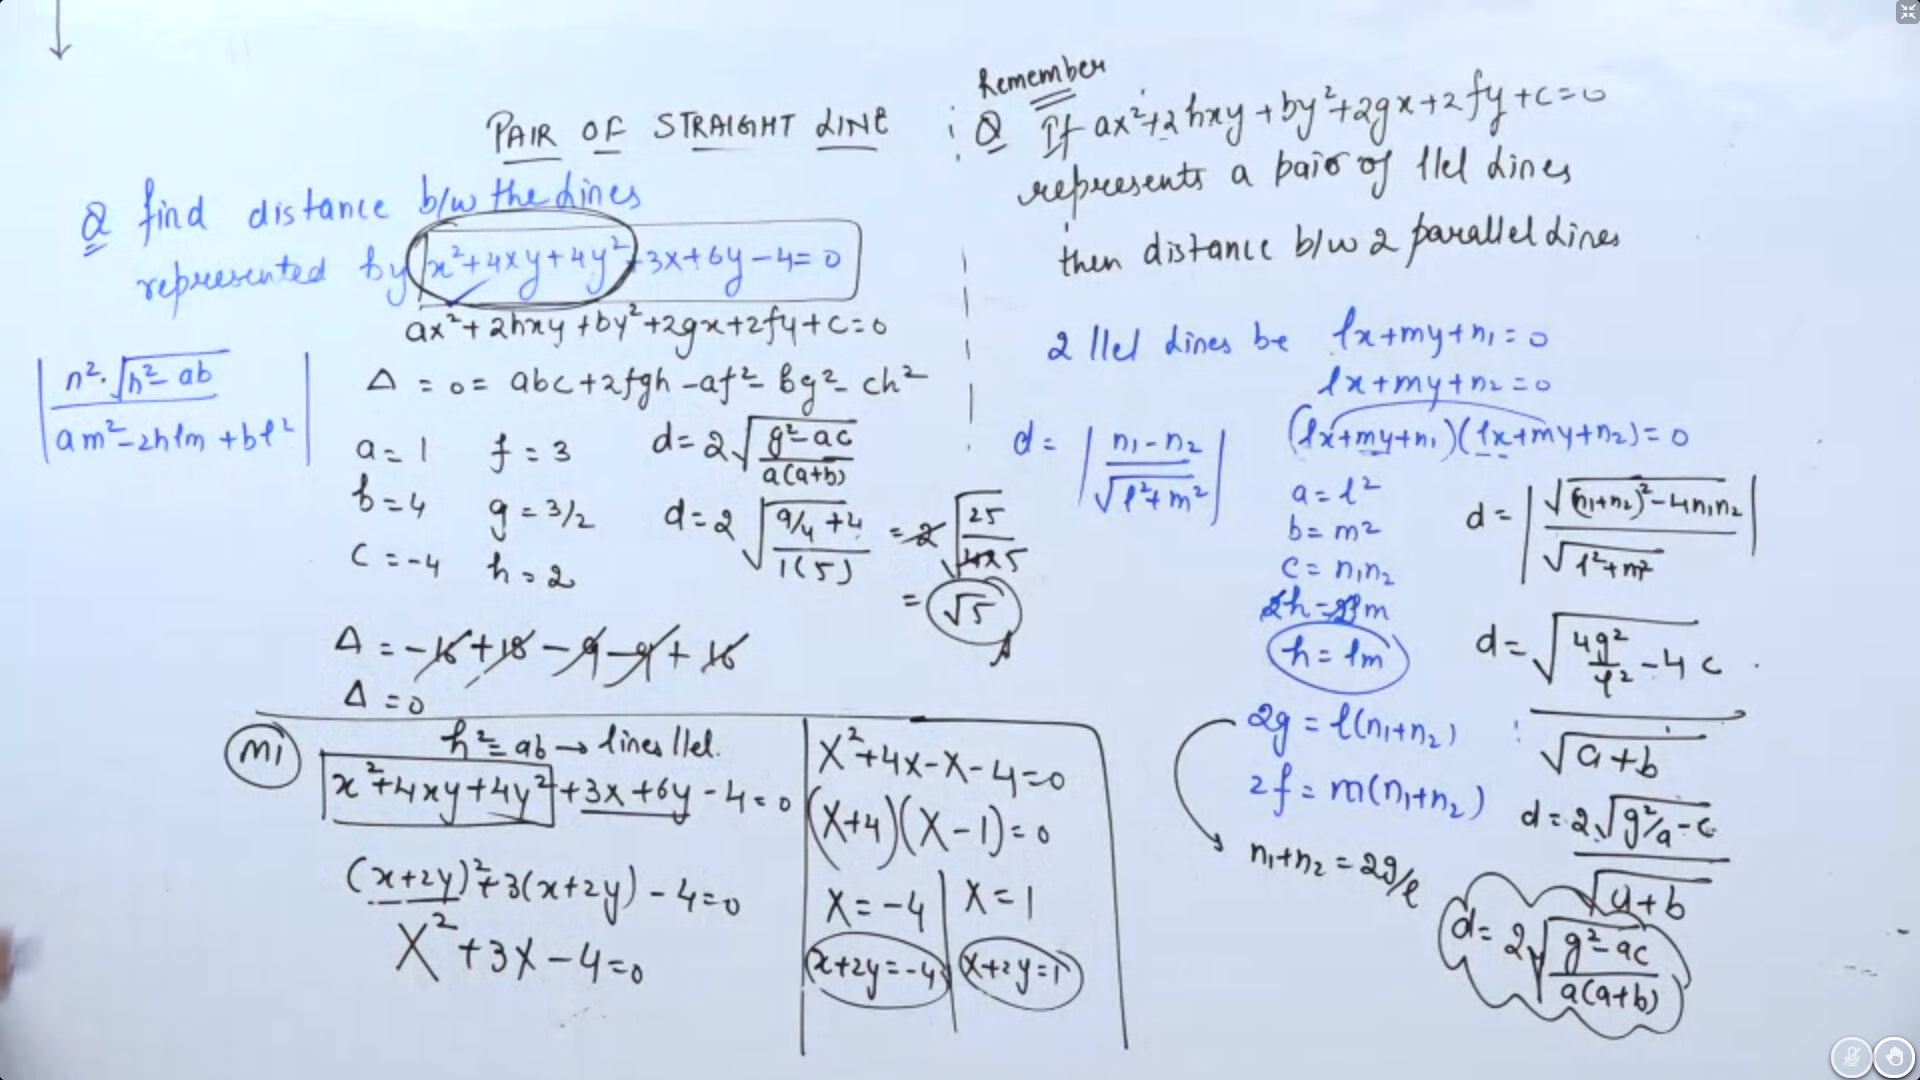 PAIR OF STRAIGHT LINE
Q find distance b/w the Lines
represented by x²+4xy+4y²+3x+6y-4=0
ax²+2hxy+by²+2gx+2fy+c=0
|n²·√(h²-ab) / am²-2hlm+bl²|
Δ = 0 = abc+2fgh-af²-bg²-ch²
a=1 f=3 d=2√(g²-ac / a(a+b))
b=4 g=3/2 d=2√(9/4+4 / 1(5)) = 2√(25 / 4×5)
c=-4 h=2 = √5
Δ = -16+18-9-9+16
Δ=0
M1 h²=ab → lines llel.
x²+4xy+4y²+3x+6y-4=0
(x+2y)²+3(x+2y)-4=0
X²+3X-4=0
X²+4X-X-4=0
(X+4)(X-1)=0
X=-4 X=1
x+2y=-4 x+2y=1
Remember
Q If ax²+2hxy+by²+2gx+2fy+c=0
represents a pair of llel Lines
then distance b/w 2 parallel Lines
2 llel Lines be lx+my+n₁=0
lx+my+n₂=0
d= |n₁-n₂ / √(l²+m²)| (lx+my+n₁)(lx+my+n₂)=0
a=l²
b=m²
c=n₁n₂
2h=2lm
h=lm
2g=l(n₁+n₂)
2f=m(n₁+n₂)
n₁+n₂=2g/l
d=|√((n₁+n₂)²-4n₁n₂) / √(l²+m²)|
d=√(4g²/l²-4c) / √(a+b)
d=2√(g²/a-c) / √(a+b)
d=2√(g²-ac / a(a+b))